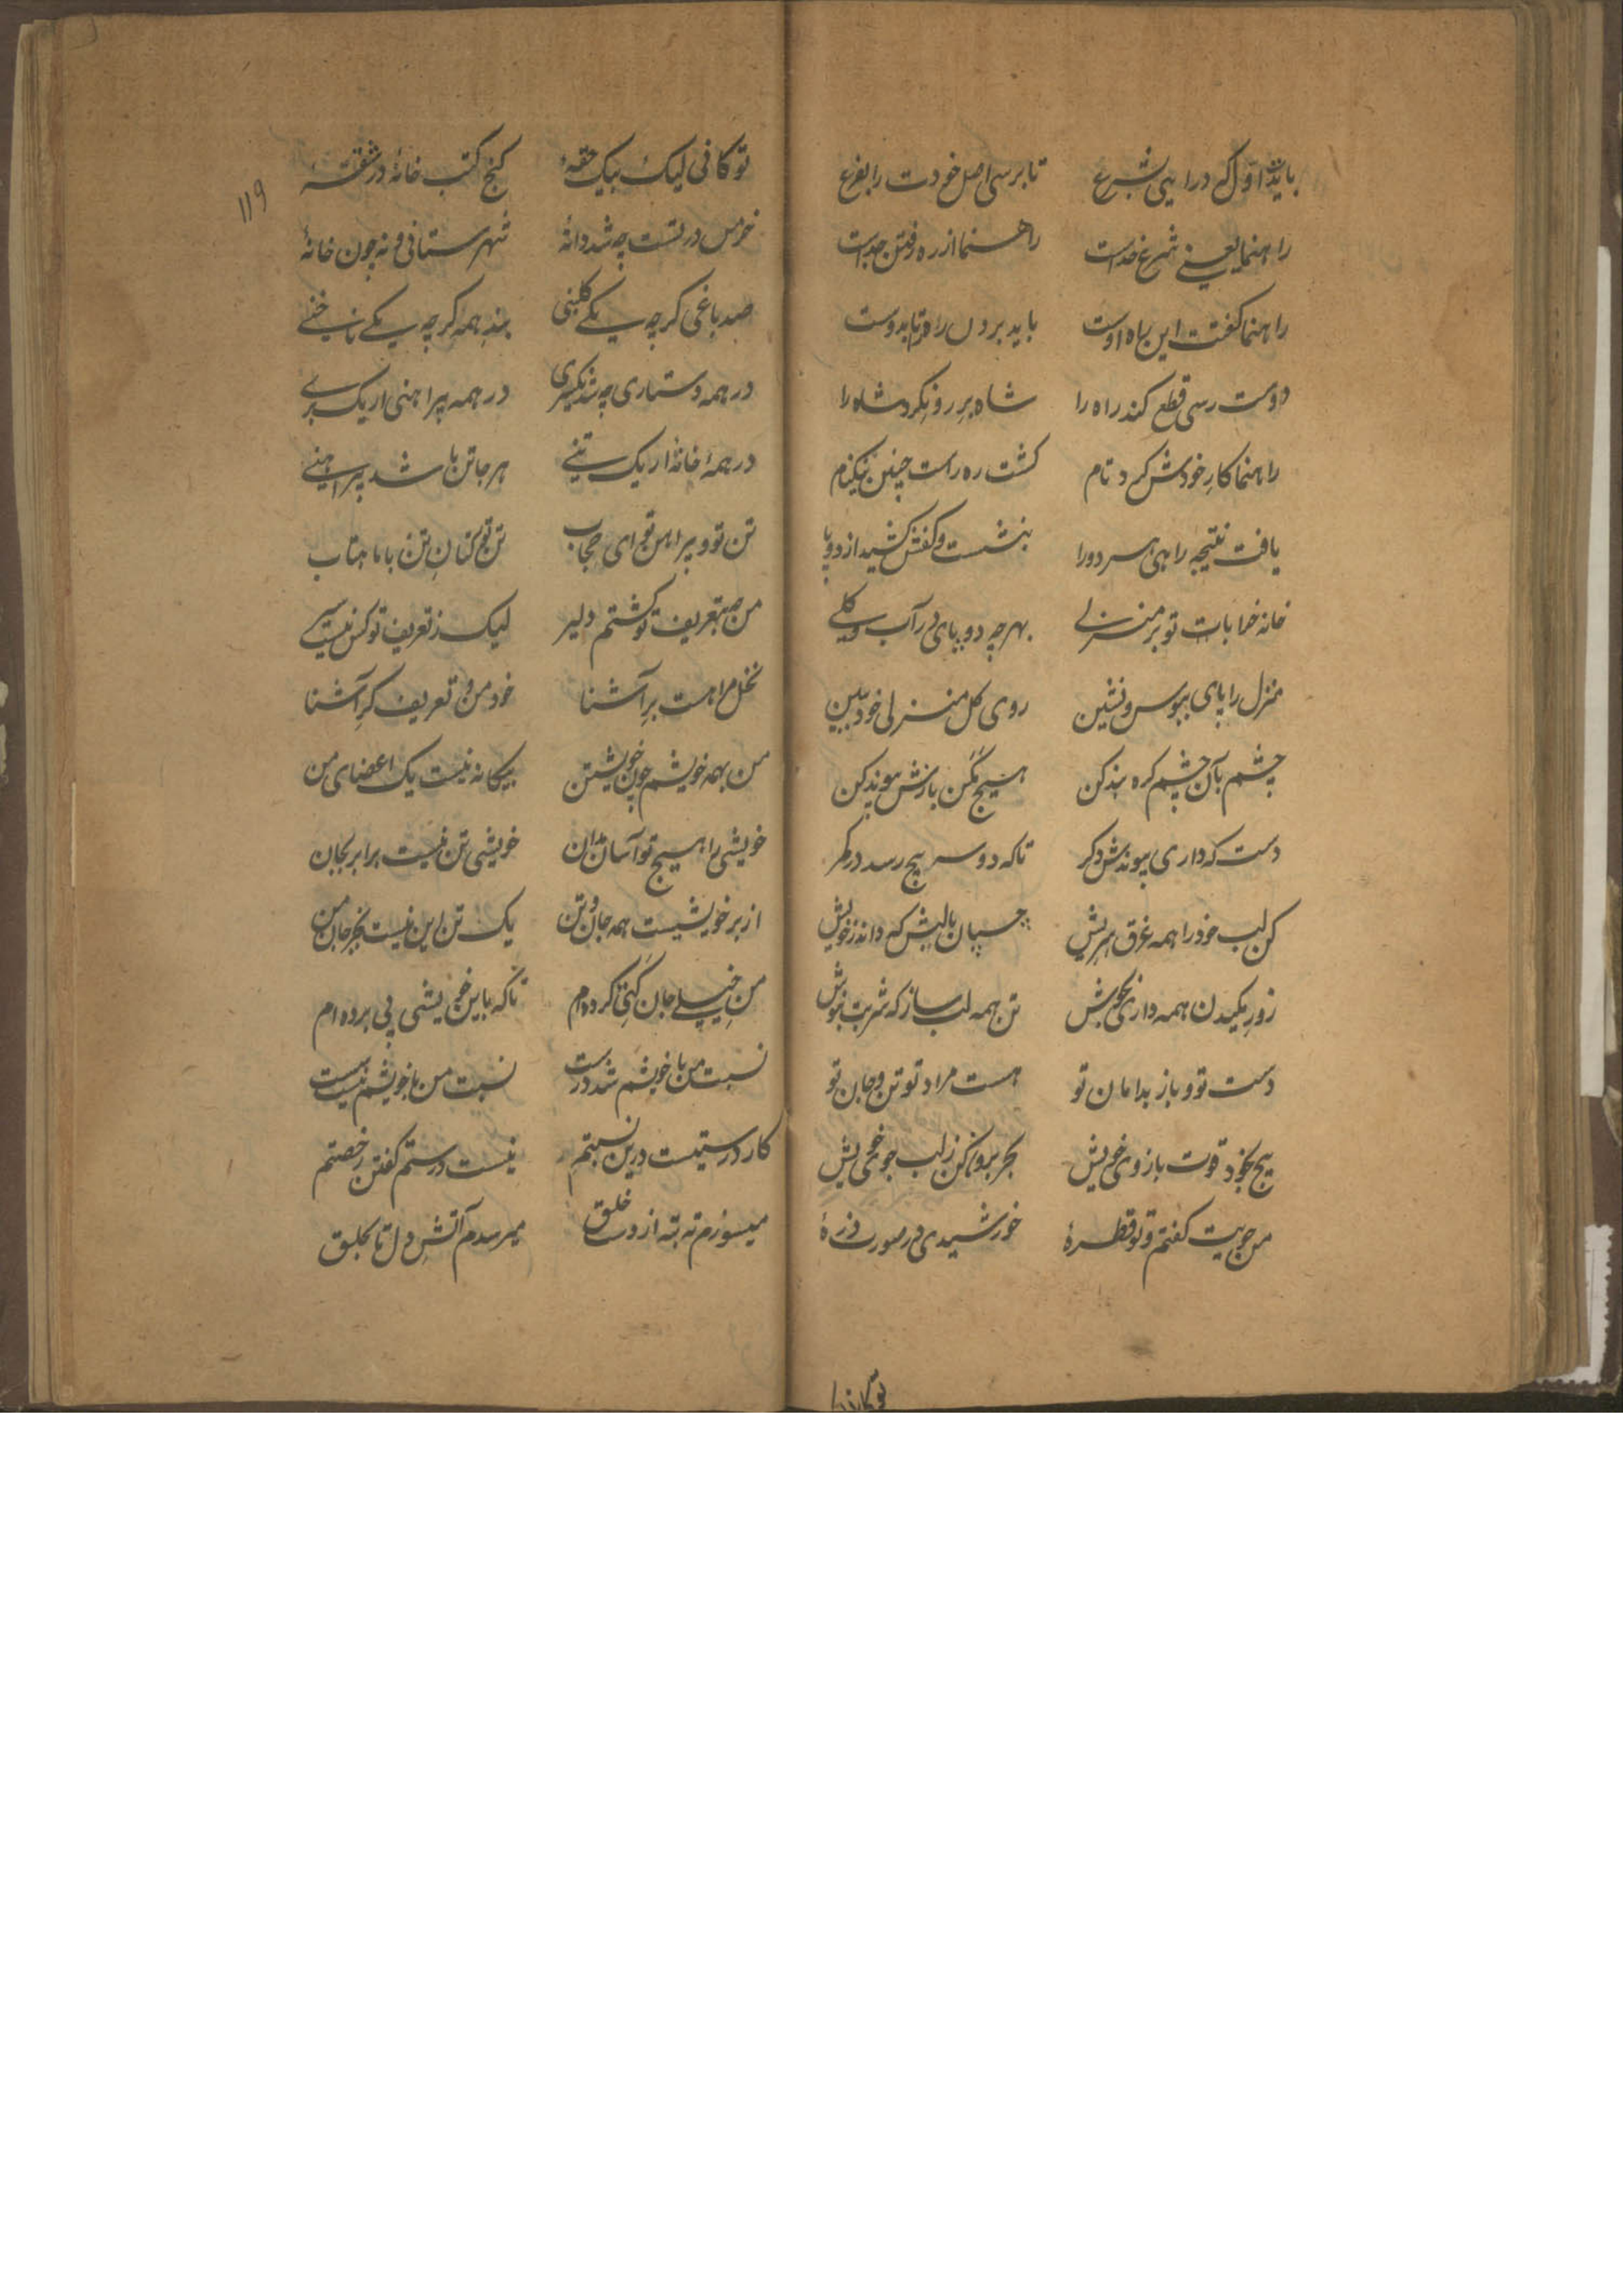 باید اول که درایی بشرع تا برسی اصل خودت را بفرع
راهنما یعنی شرع خداست راهنما از ره رفتن جداست
راهنما گفت این راه اوست باید بردن راه تا بدوست
دوست رسی قطع کند راه را شاه برِ رو نکرد شاه را
راهنما کارِ خودش کرد تمام گشت ره راست چنین نیکنام
یافت نتیجه راهی هر دورا بنشست و کفش کشید از دو پا
خانه خرابات تو بر منزلی بهرچه دو پای در آب و گلی
منزل را پای ببوس و نشین روی گل منزلی خود ببین
چشم بآن چشم کره بند کن هیچ مکن بازش پیوند کن
دست که داری پیوندش دکر تاکه دو سر پیچ رسد در کمر
کن لب خود را همه غرق بریش چسپان بالبش که داند ز خویش
زورِ مکیدن همه داری بکوش تن همه لب ساز که شربت بنوش
دست تو و باز بدامان تو هست مراد تو تن و جان تو
پیچ بخود قوت بازوی خویش بحر برون کن ز لب جوی خویش
من حربیت گفتم و تو قطرهٔ خورشیدی در صورت ذرهٔ
تو کانی
۱۱۹
تو کانی لیک بیک حقهٔ کنج کتب خانهٔ در شقهٔ
خرمن در تست چه شد دانهٔ شهرستانی و نه چون خانهٔ
صد باغی کرچه یکی کلبنی بند همه کرچه یکی ناخنی
در همه دستاری چه شد یکسری در همه پیراهنی ار یک بری
در همهٔ خانهٔ ار یک تنی هر جا تن باشد پیراهنی
تن تو و پیراهن تو ای حجاب تن تو کتانِ تن با ماهتاب
من بتعریف تو گشتم دلیر لیک ز تعریف تو کس نیست سیر
نخل مرا هست برِ آشنا خود من و تعریف کرِ آشنا
من بهمه خویشم چون خویشتن بیکانه نیست یک اعضای من
خویشی را هیچ تو آسان مدان خویشی تن نیست برابر بجان
از بر خویشیست همه جان و تن یک تن این نیست بجز جان من
من خیلی جان کنی کرده‌ام تاکه باین خویشی پی برده‌ام
نسبت من با خویشم شد درست نسبت من با خویشم نیست سست
کار درستیست درین نسبتم نیست درستم گفتن رخصتم
میسوزم ته بته از دست خلق میرسدم آتش دل تا بحلق